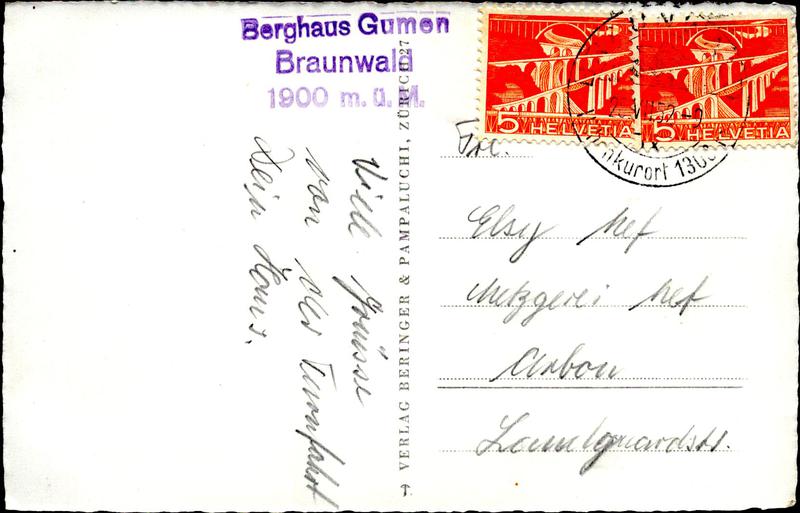 Berghaus Gumen
Braunwald
1900 m. ü. M.
5 HELVETIA
5 HELVETIA
kurort 1300
Viele Grüsse
von der Turnfahrt
Dein Hans.
VERLAG BERINGER & PAMPALUCHI, ZÜRICH 27
Frl.
Elsy Nef
Metzgerei Nef
Arbon